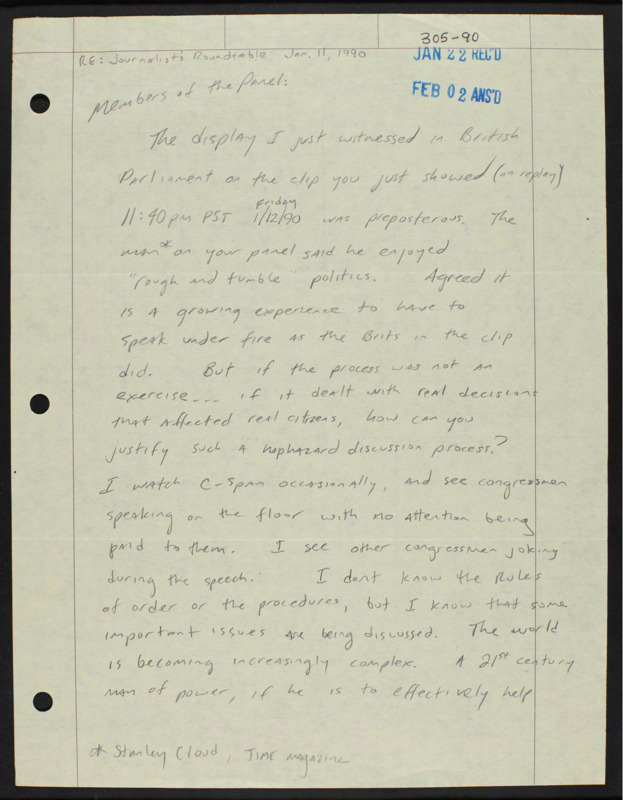 305-90
JAN 22 REC'D
RE: Journalist's Roundtable Jan. 11, 1990
FEB 02 ANS'D
Members of the Panel:
The display I just witnessed in British
Parliament on the clip you just showed (on replay)
Friday
11:40 pm PST 1/12/90 was preposterous. The
man* on your panel said he enjoyed
"rough and tumble" politics. Agreed it
is a growing experience to have to
speak under fire as the Brits in the clip
did. But if the process was not an
exercise... if it dealt with real decisions
that affected real citizens, how can you
justify such a haphazard discussion process?
I watch C-Span occasionally, and see congressmen
speaking on the floor with no attention being
paid to them. I see other congressmen joking
during the speech. I dont know the Rules
of order or the procedures, but I know that some
important issues are being discussed. The world
is becoming increasingly complex. A 21st century
man of power, if he is to effectively help
* Stanley Cloud, TIME magazine